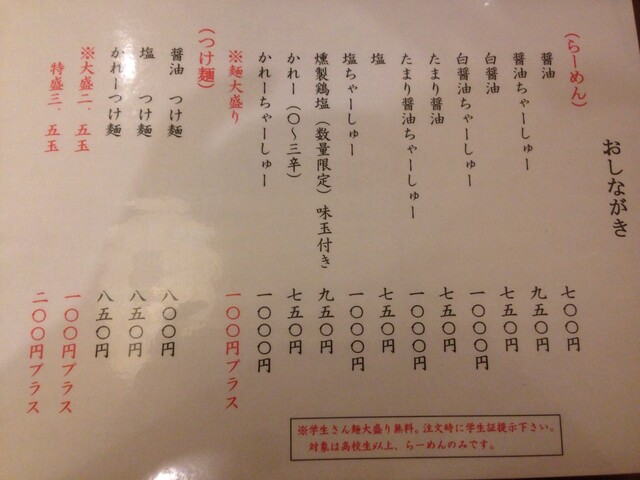 おしながき
（らーめん）
醤油　七〇〇円
醤油ちゃーしゅー　九五〇円
白醤油　七五〇円
白醤油ちゃーしゅー　一〇〇〇円
たまり醤油　七五〇円
たまり醤油ちゃーしゅー　一〇〇〇円
塩　七五〇円
塩ちゃーしゅー　一〇〇〇円
燻製鶏塩（数量限定）味玉付き　九五〇円
かれー（〇～三辛）　七五〇円
かれーちゃーしゅー　一〇〇〇円
※麺大盛り　一〇〇円プラス
（つけ麺）
醤油　つけ麺　八〇〇円
塩　つけ麺　八五〇円
かれーつけ麺　八五〇円
※大盛二、五玉　一〇〇円プラス
特盛三、五玉　二〇〇円プラス
※学生さん麺大盛り無料。注文時に学生証提示下さい。
対象は高校生以上、らーめんのみです。